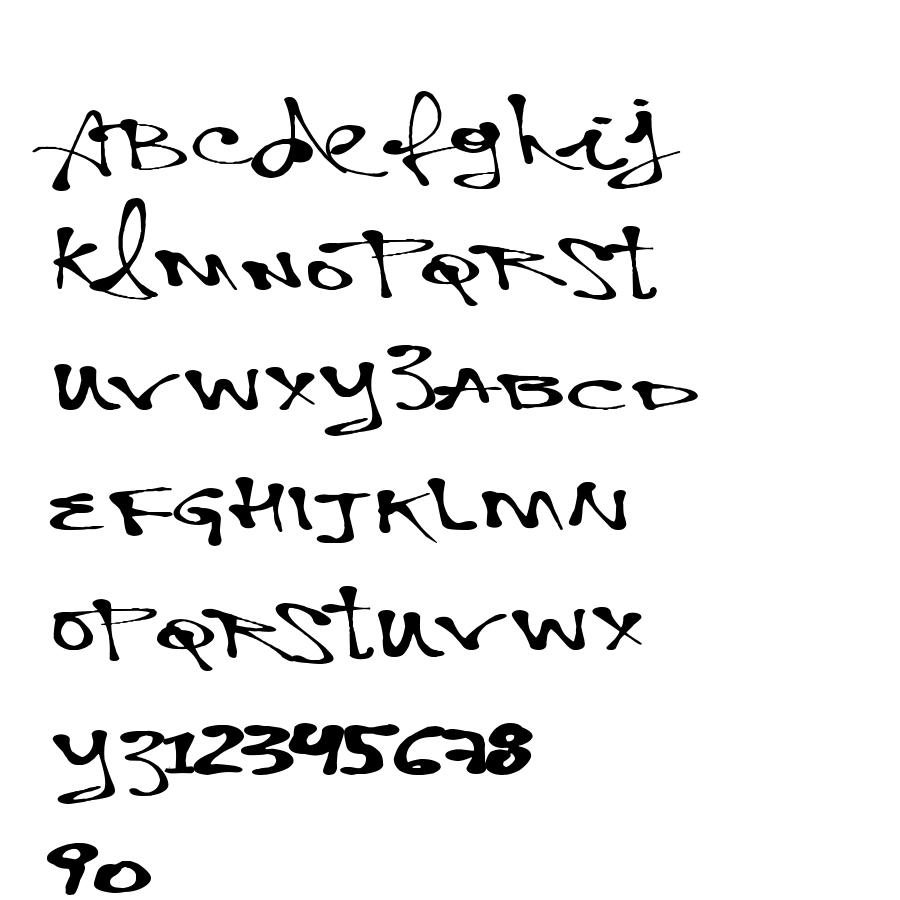 ABcdefghij
KlMNOPQRSt
UVWXYZABCD
EFGHIJKLMN
OPQRStUVWX
YZ12345678
90